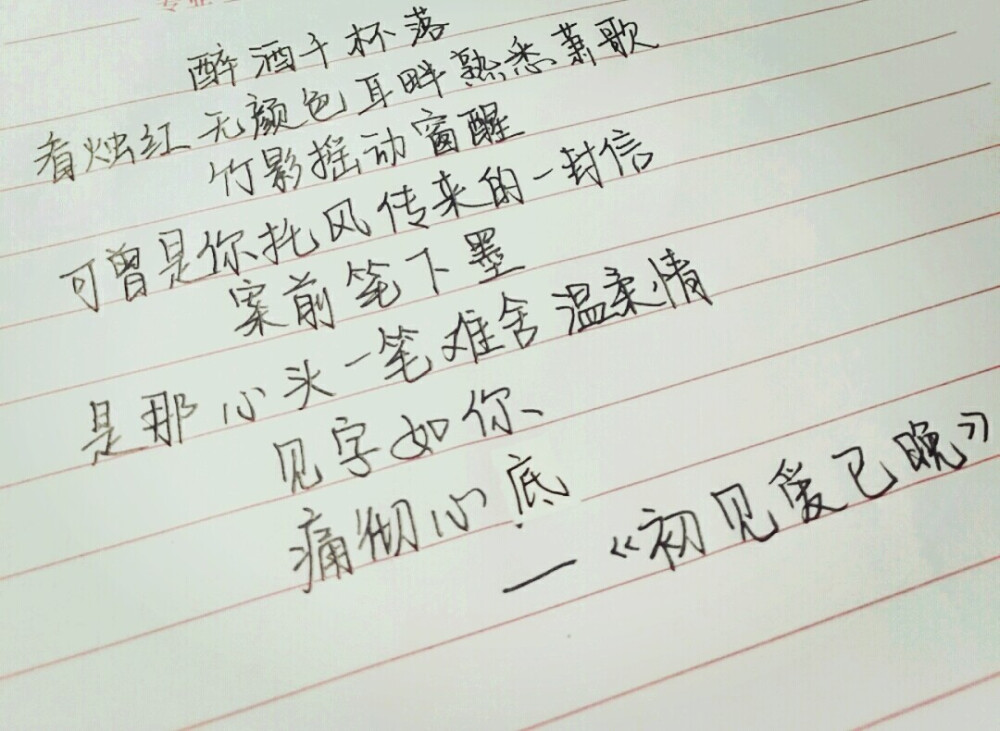 专业
醉酒千杯落
看烛红无颜色耳畔熟悉萧歌
竹影摇动窗醒
可曾是你托风传来的一封信
案前笔下墨
是那心头一笔难舍温柔情
见字如你、
痛彻心底
—《初见爱已晚》